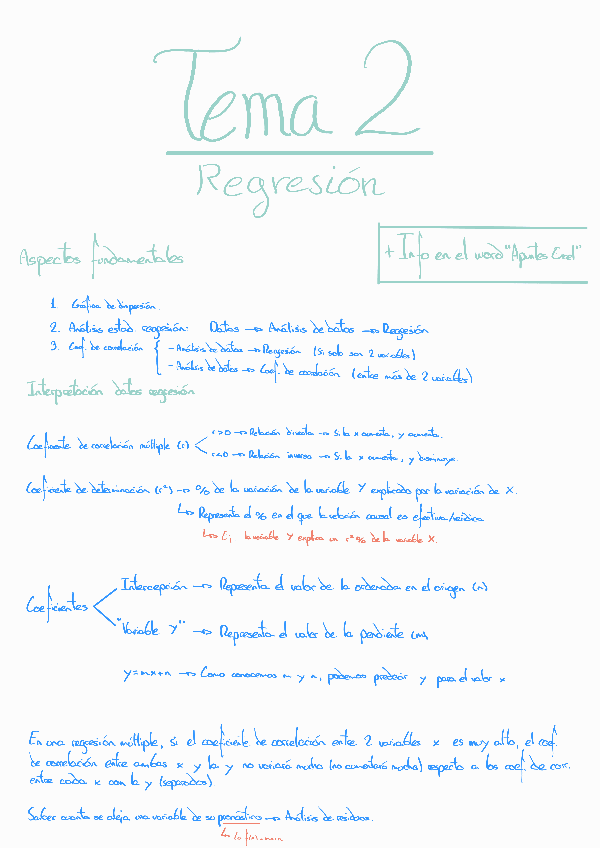 Tema 2
Regresión
Aspectos fundamentales
+ Info en el word "Apuntes Excel"
1. Gráfica de dispersión.
2. Análisis estad. regresión: Datos → Análisis de datos → Regresión
3. Coef. de correlación { - Análisis de datos → Regresión (Si solo son 2 variables)
- Análisis de datos → Coef. de correlación (entre más de 2 variables)
Interpretación datos regresión
Coeficiente de correlación múltiple (r)
r>0 → Relación directa → Si la x aumenta, y aumenta.
r<0 → Relación inversa → Si la x aumenta, y disminuye.
Coeficiente de determinación (r²) → % de la variación de la variable Y explicado por la variación de X.
↳ Representa el % en el que la relación causal es efectiva/verídica
↳ la variable Y explica un r²% de la variable X.
Coeficientes
Intercepción → Representa el valor de la ordenada en el origen (n)
"Variable Y" → Representa el valor de la pendiente (m)
y=mx+n → Como conocemos m y n, podemos predecir y para el valor x
En una regresión múltiple, si el coeficiente de correlación entre 2 variables x es muy alto, el coef.
de correlación entre ambas x y la y no variará mucho (no aumentará mucho) respecto a los coef. de cor.
entre cada x con la y (separados)
Saber cuanto se aleja una variable de su pronóstico → Análisis de residuos.